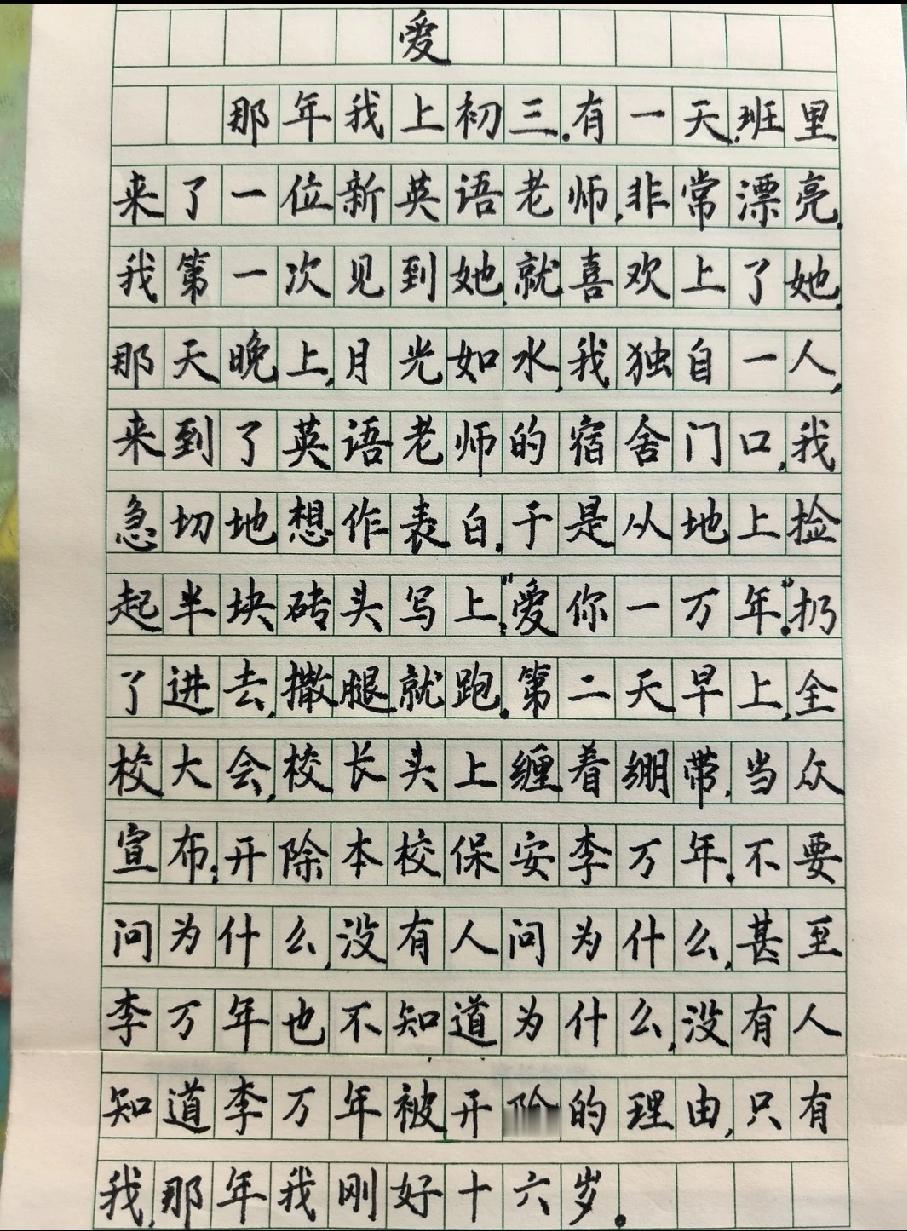 爱
那年我上初三.有一天.班里
来了一位新英语老师.非常漂亮.
我第一次见到她.就喜欢上了她.
那天晚上,月光如水,我独自一人,
来到了英语老师的宿舍门口,我
急切地想作表白.于是从地上捡
起半块砖头写上,"爱你一万年."扔
了进去,撒腿就跑.第二天早上,全
校大会,校长头上缠着绷带,当众
宣布;开除本校保安李万年.不要
问为什么,没有人问为什么,甚至
李万年也不知道为什么,没有人
知道李万年被开除的理由,只有
我,那年我刚好十六岁。